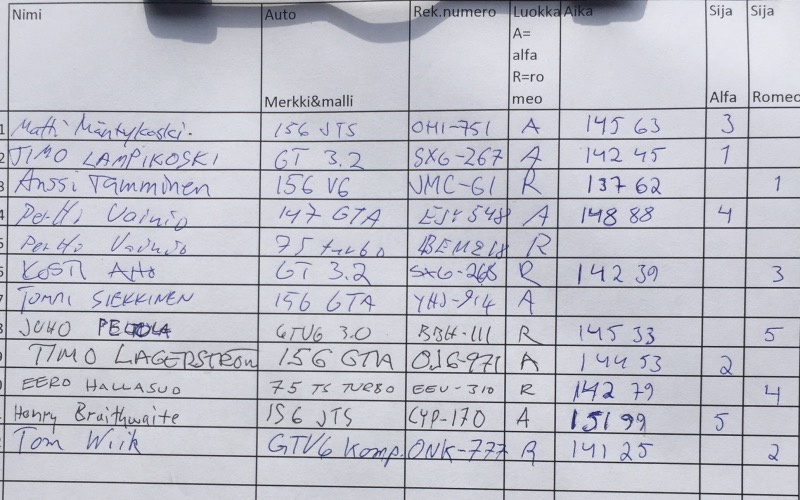 Nimi Auto Rek.numero Luokka Aika Sija Sija
A=
alfa
R=ro
Merkki&malli meo Alfa Romeo
1 Matti Mäntykoski. 156 JTS OHI-751 A 145 63 3
2 TIMO LAMPIKOSKI GT 3.2 SXG-267 A 142 45 1
3 Anssi Tamminen 156 V6 JMC-61 R 137 62 1
4 Pertti Vainio 147 GTA 548 A 148 88 4
5 Pertti Vainio 75 turbo R
6 KOSTI AHO GT 3.2 SXG-268 R 142 39 3
7 TOMMI SIEKKINEN 156 GTA YHJ-914 A
8 JUHO PELTOLA GTV6 3.0 BBH-111 R 145 33 5
9 TIMO LAGERSTRÖM 156 GTA OJG-971 A 144 53 2
EERO HALLASUO 75 TS TURBO EEV-310 R 142 79 4
Henry Braithwaite 156 JTS CYP-170 A 151 99 5
Tom Wiik GTV6 Komp. ONK-777 R 141 25 2